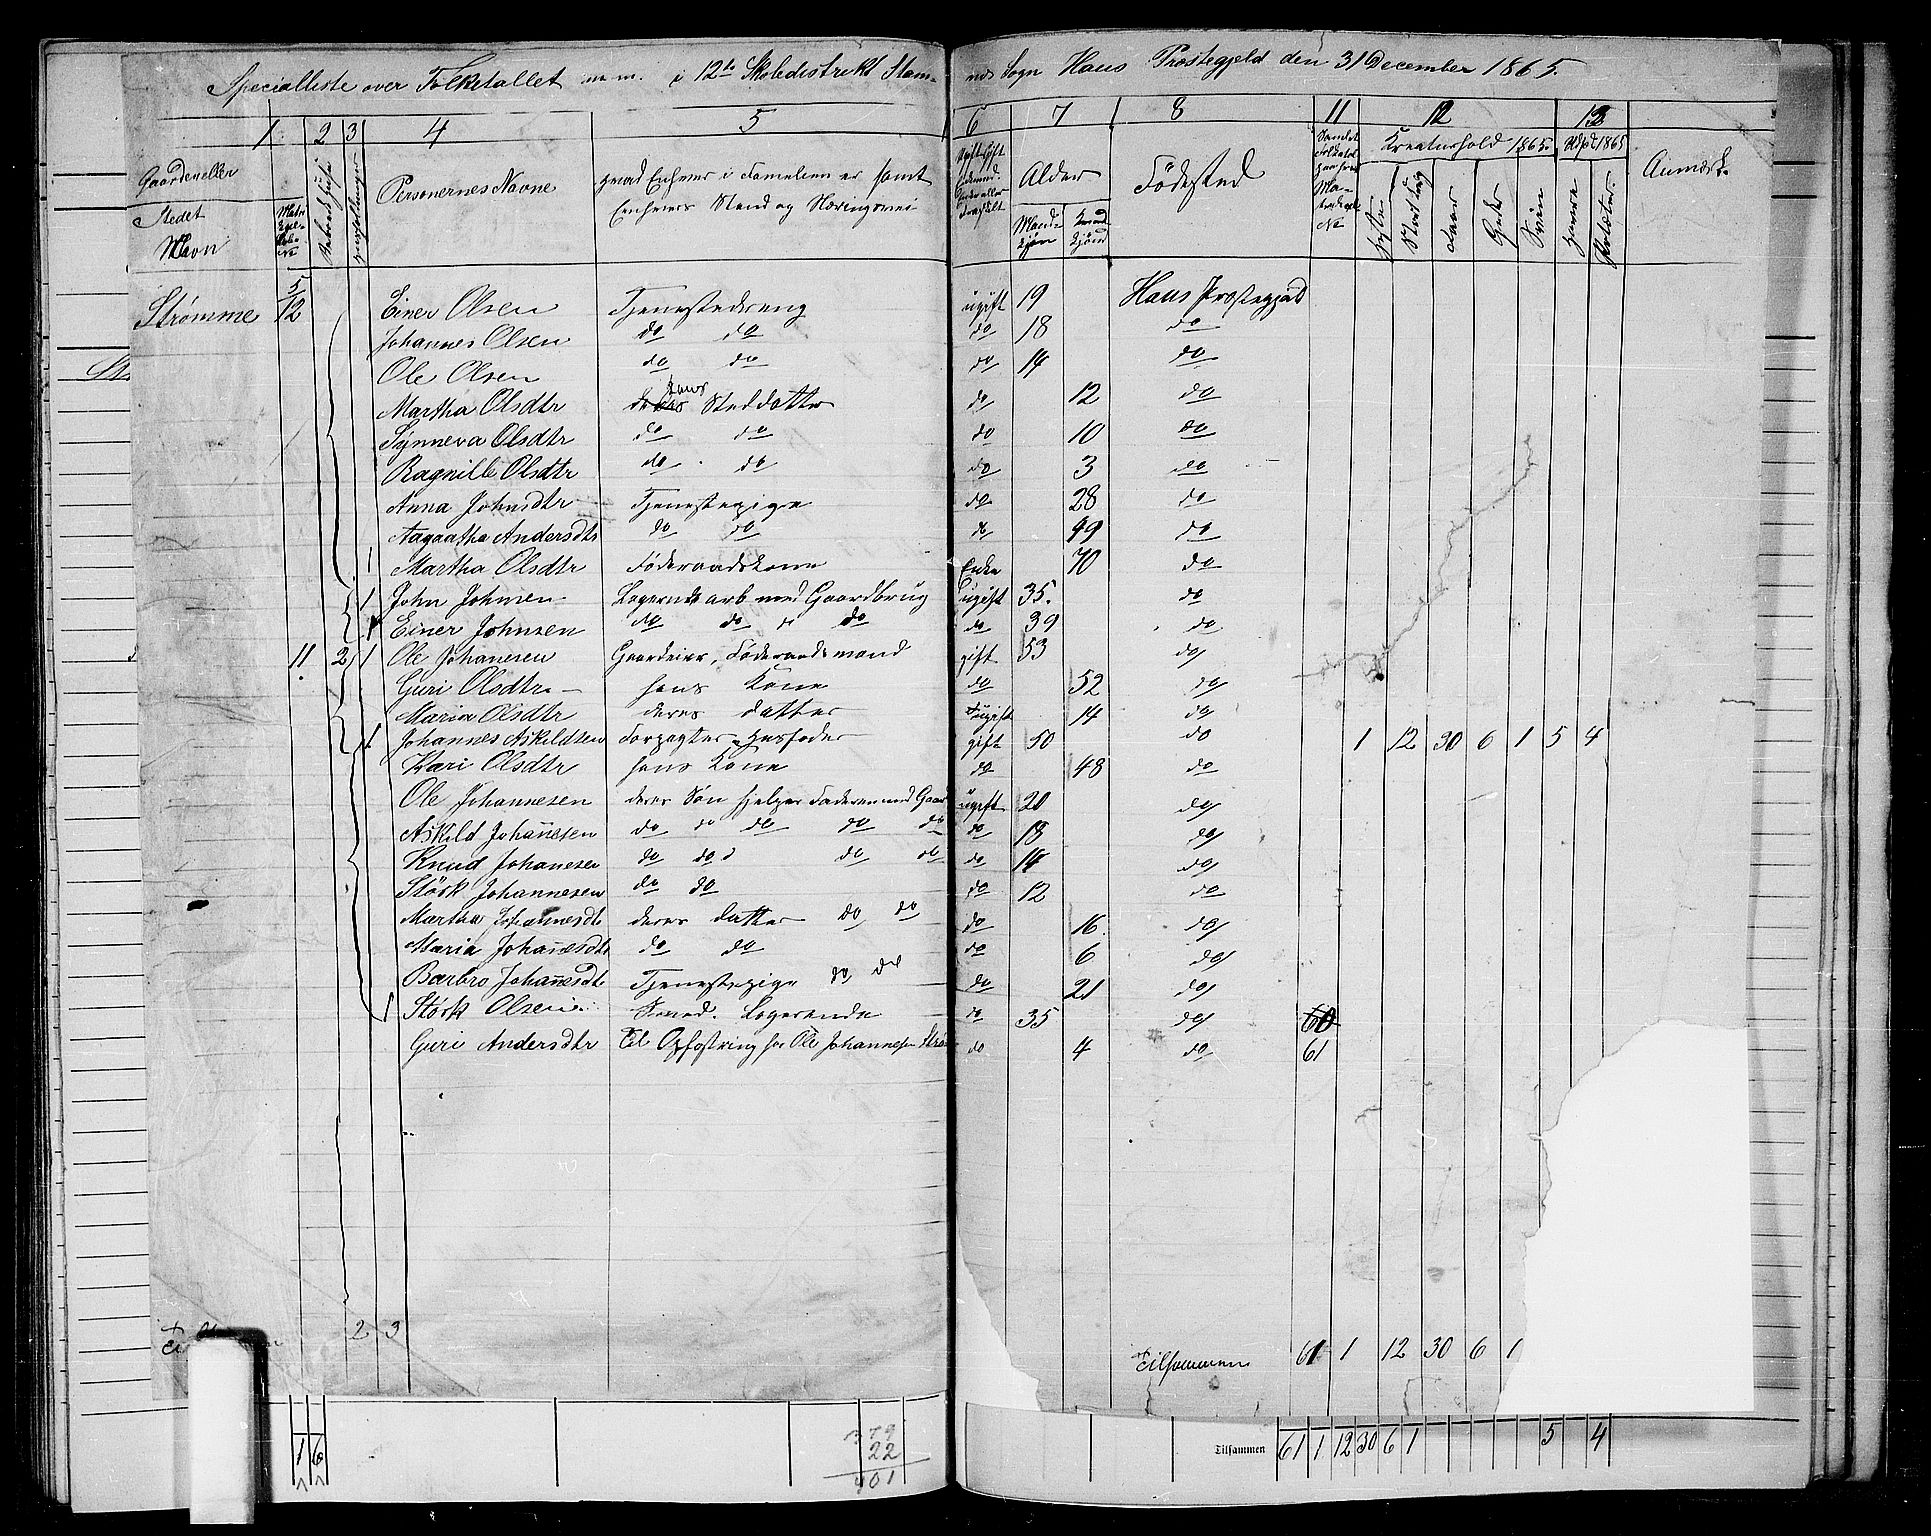 Specialliste over Folketallet m. m. i 12te Skoledistrikt Stam- nes Sogn Haus Præstegjeld den 31 December 1865.
1 2 3 4 5 6 7 8 11 12 13
Gaardens eller Stedet Navn Personernes Navne hvad Enhver i Familien er samt Enhvers Stand og Næringsvei Alder Fødested Kreaturhold 1865. Udsæd 1865 Anmærk.
Mandkjøn Kvindkjøn Heste Stort Qvæg Faar Geder Sviin Havre Poteter
Strømme 5/12 Einer Olsen Tjenestedreng ugift 19 Haus Præstegjæld
Johannes Olsen do do do 18 do
Ole Olsen do do do 14 do
Martha Olsdtr hans Steddatter do 12 do
Synneva Olsdtr do do do 10 do
Ragnille Olsdtr do do do 3 do
Anna Johnsdtr Tjenestepige do 28 do
Aagaatha Andersdtr do do do 49 do
1 Martha Olsdtr Føderaadskone Enke 70 do
1 John Johnsen Logerende arb med Gaardbrug ugift 35. do
1 Einer Johnsen do do do do 39 do
11. 2 1 Ole Johanesen Gaardeier, Føderaadsmand gift 53 do
Guri Olsdtr hans Kone do 52 do
Maria Olsdtr deres Datter ugift 14 do
1 Johannes Askildsen Forpagter Husfader gift 50 do 1 12 30 6 1 5 4
Kari Olsdtr hans Kone do 48 do
Ole Johannesen deres Søn hjelper Faderen med Gaar ugift 20 do
Askild Johañesen do do do do do do 18 do
Knud Johanesen do do do do do 14 do
Störk Johannesen do do do 12 do
Martha Johannesdt deres Datter do do do 16. do
Maria Johañesdtr do do do 6 do
Barbro Johañesdt Tjenestepige do do do 21 do
1 Störk Olsen Smed. Logerende do 35 do 60
Guri Andersdtr til Opfostring hos Ole Johannesen Strø do 4 do 61
2 3 Tilsammen 61 1 12 30 6 1
1 6 379 Tilsammen 61 1 12 30 6 1 5 4
22
401